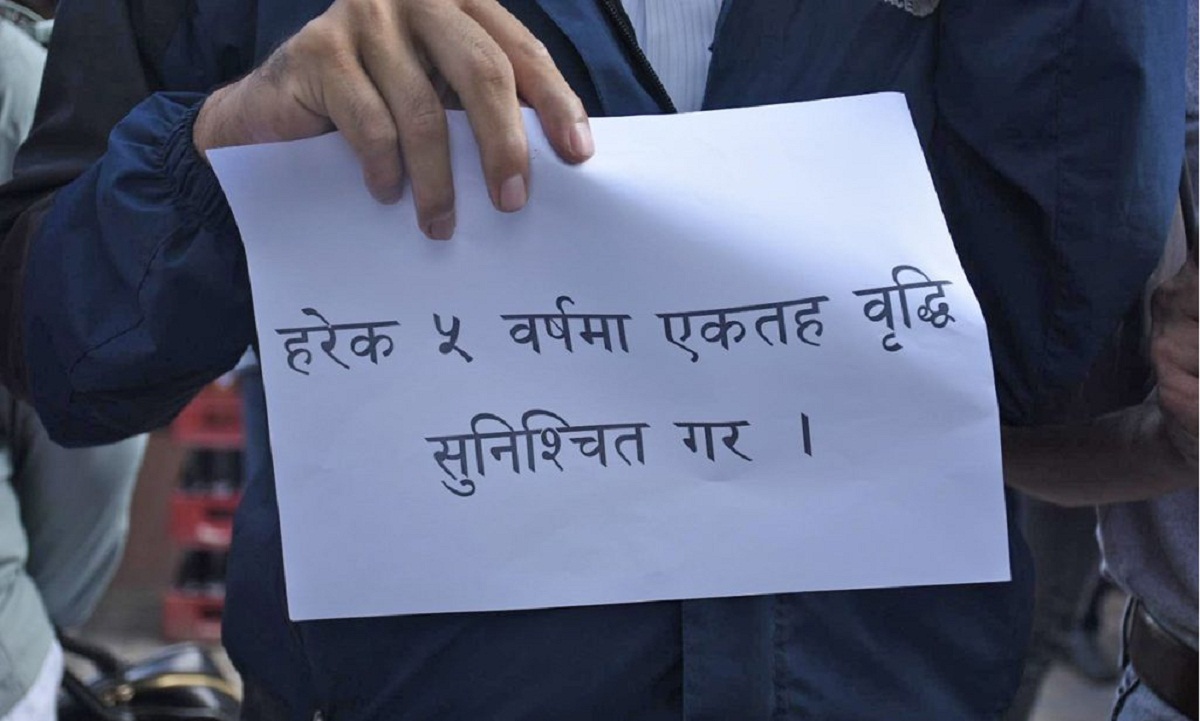 हरेक ५ वर्षमा एकतह वृद्धि
सुनिश्चित गर ।